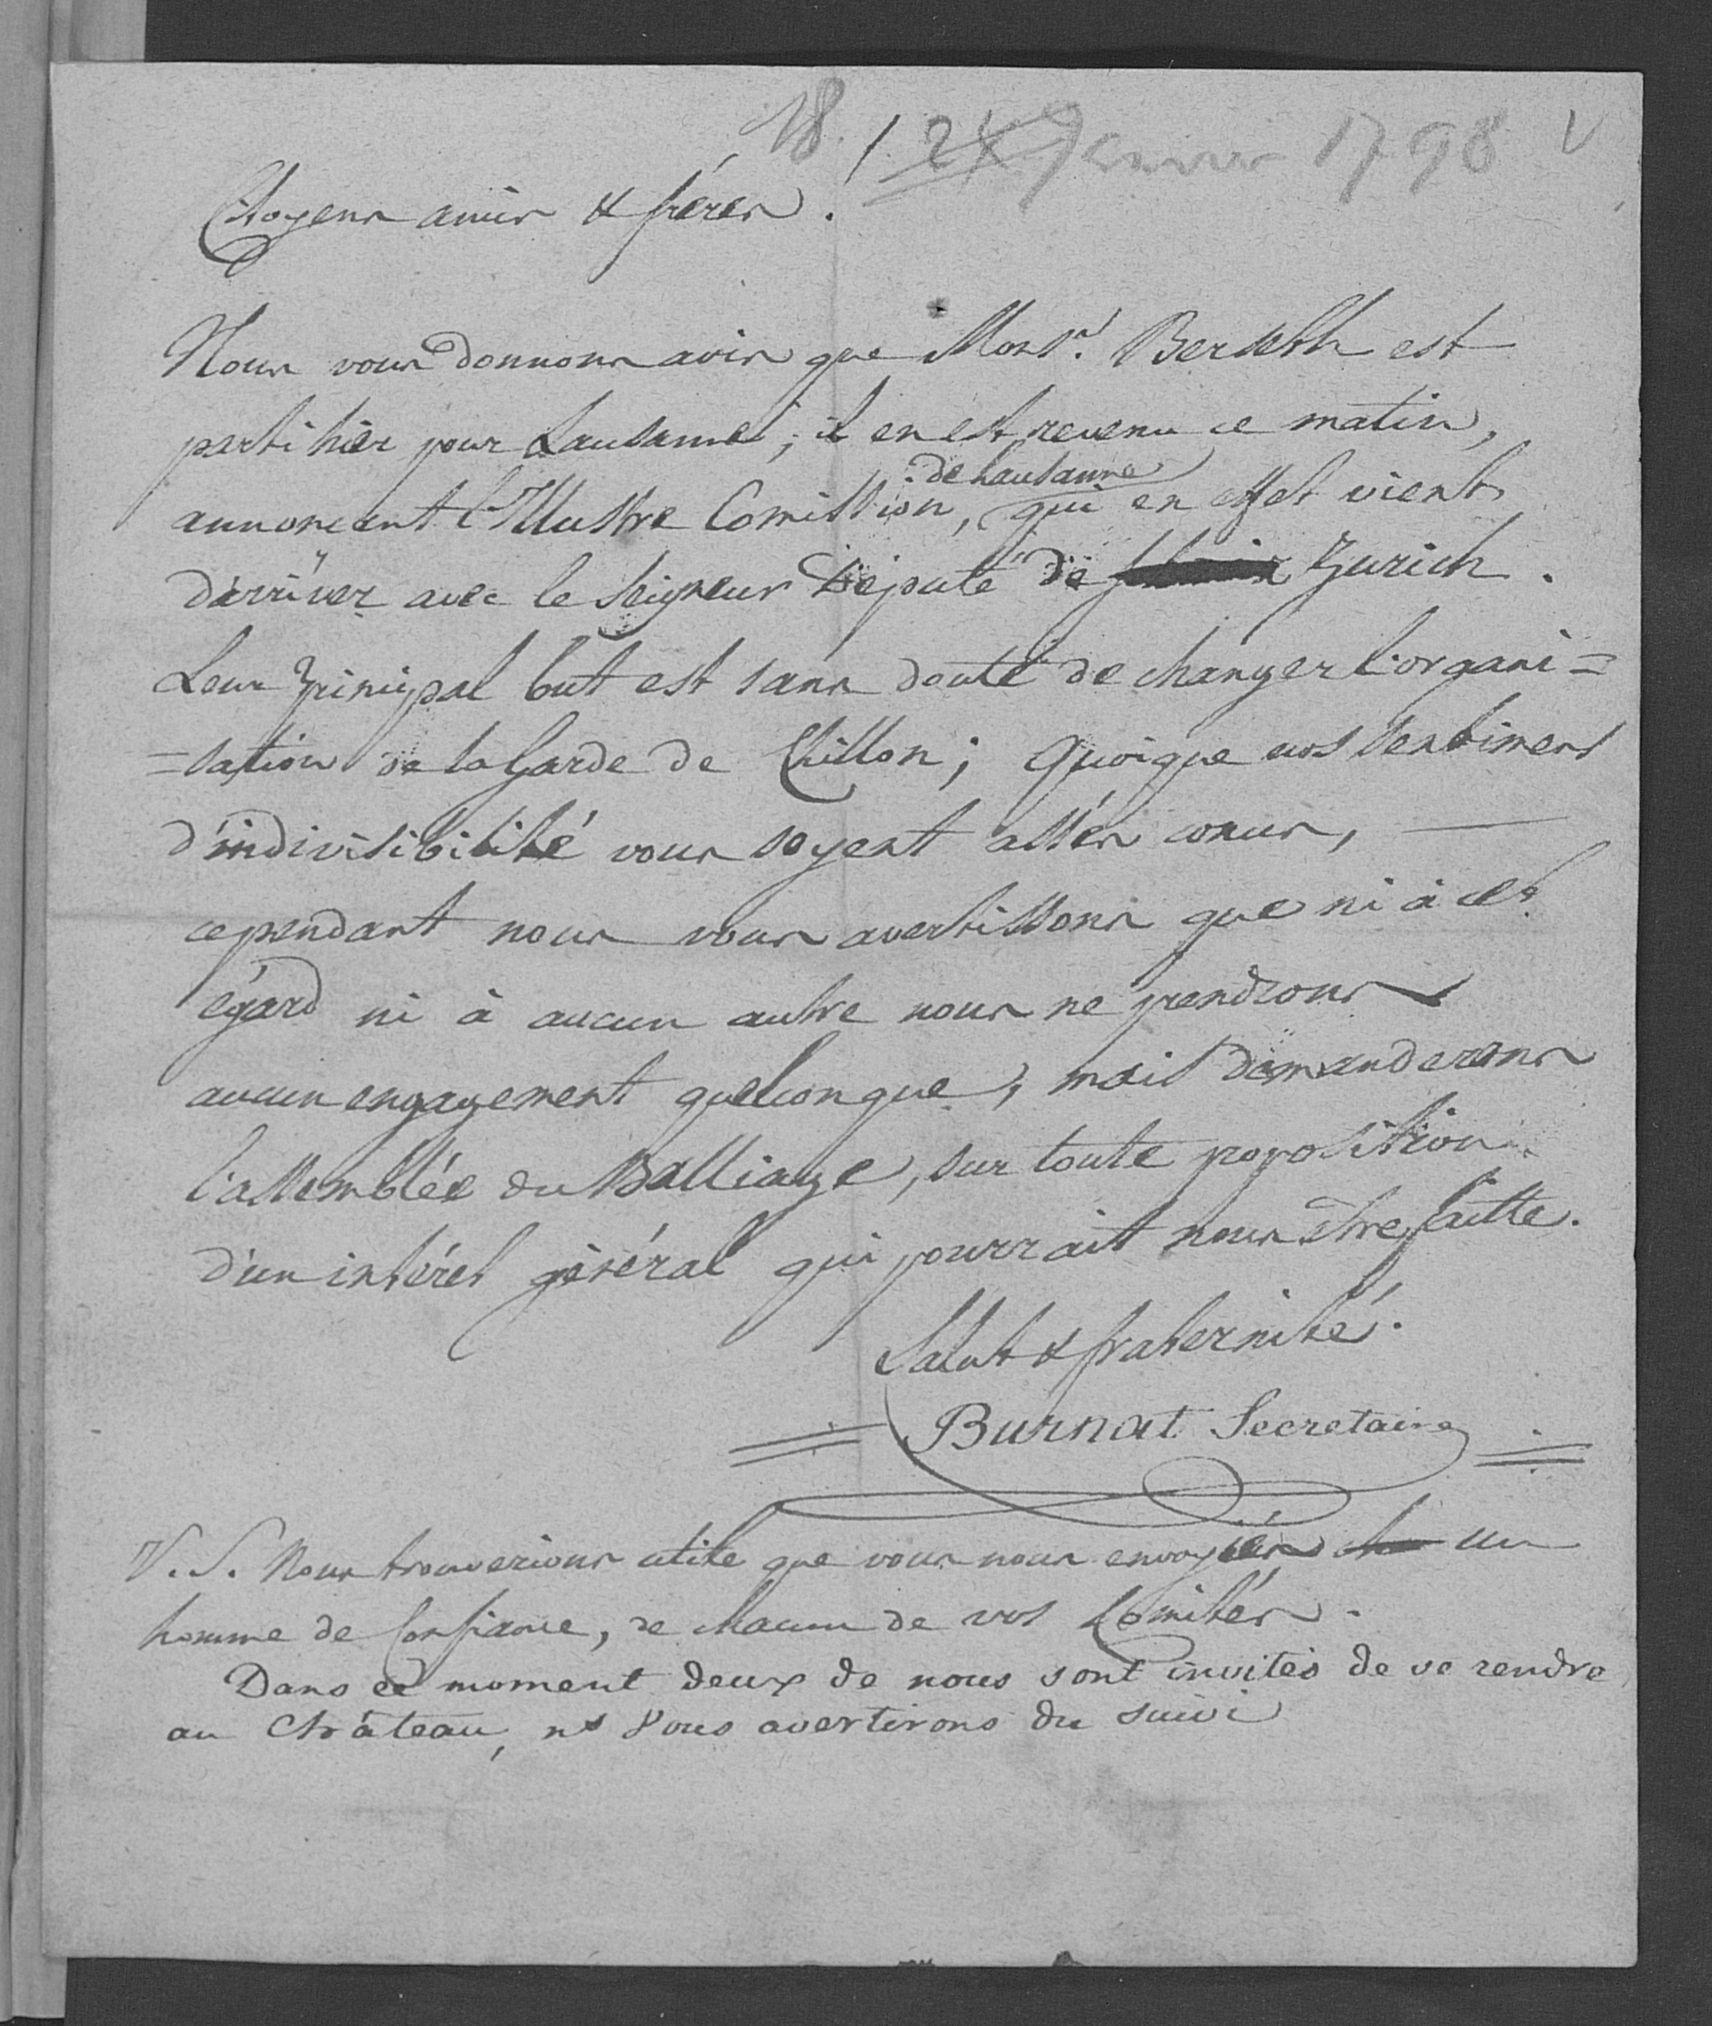 18. / 24 Janvier 1798 V
Citoyens amis & fréres !
Nous vous donnons avis que Monsr. Berseth est
parti hiér pour Lausanne ; il en est revenu ce matin,
de Lausanne
annoncant l'Illustre Comission, qui en effet vient
d'arriver avec le Seigneur Député de Zurich.
Leur principal but est sans doute de changer l'organi=
=sation de la Garde de Chillon ; Quoique nos sentimens
d'indivisibilité vous soyent assés conus,
cependant nous vous avertissons que ni à cet
égard ni à aucun autre nous ne prendrons
aucun engagement quelconque, mais demanderons
l'assemblée du Balliage, sur toute proposition
d'un intérêt général qui pourrait nous être faitte.
Salut & fraternité.
Burnat Secretaire
P. S. Nous trouverions utile que vous nous envoyiés un
homme de Confiance, de chacun de vos Comités.
Dans ce moment deux de nous sont invités de se rendre
au Château, ns vous avertirons du suivi